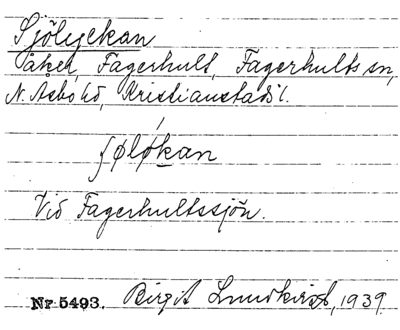 Sjölyckan
åker, Fagerhult, Fagerhults sn,
N. Åsbo hd, Kristianstads l.
ʃøløkan
Vid Fagerhultssjön.
Nr 5493. Birgit Lundkvist, 1939.